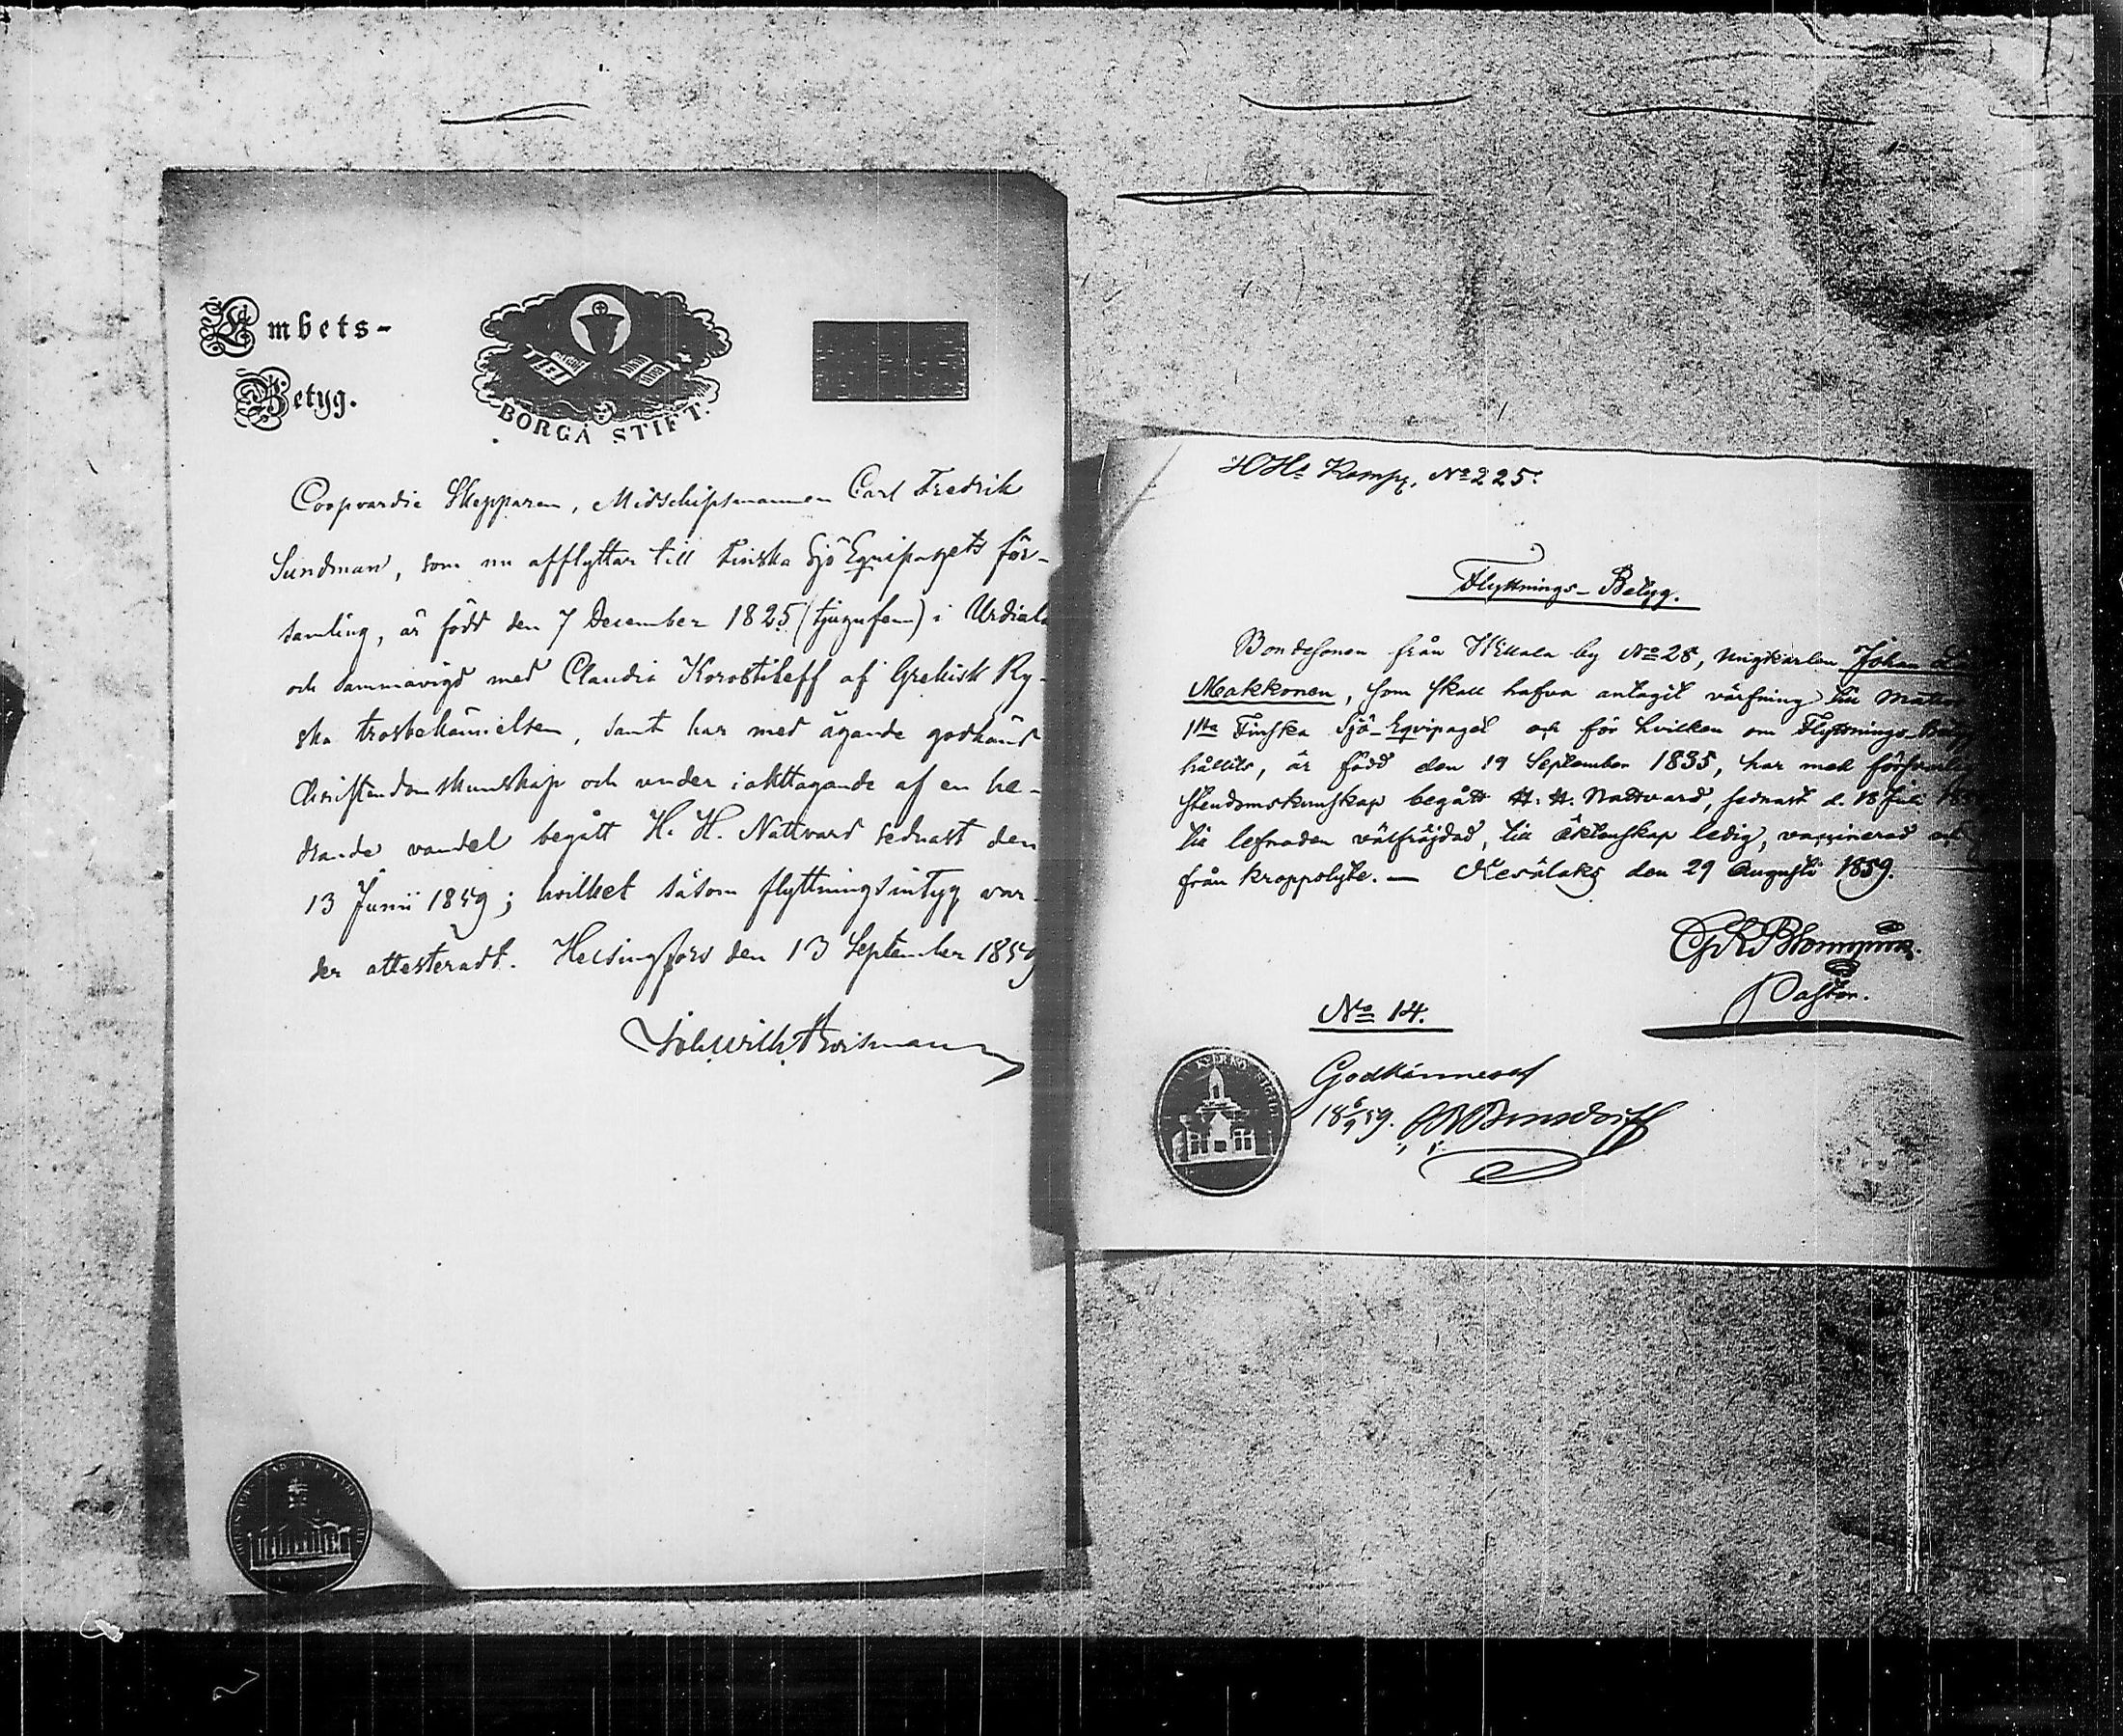 Embets-
Betyg.
BORGÅ STIFT.
Coopvardie Skepparen, Midschipsmannen Carl Fredrik
Sundman, som nu afflyttar till Finska Sjö Equipagets för-
samling, är född den 7 December 1825 (tjugufem) i Urdiala
och sammanvigd med Claudia Korostileff af Grekisk Ry-
ska trosbekännelsen, samt har med ägande godkänd
Christendomskunskap och under iakttagande af en he-
drande vandel begått H. H. Nattvard sednast den
13 Junii 1859; hvilket såsom flyttningsintyg var-
der attesteradt. Helsingfors den 13 September 1859
Joh. Wilh.
H Hs Komp. No 225.
Flyttnings-Betyg.
Bondesonen från by No 28, ungkarlen Johan
Makkonen, som skall hafva antagit värfning till Matros
1sta Finska Sjö-Eqvipaget och för hvilken om Flyttnings-Betyg
hållits, är född den 19 September 1835, har med försvarlig
stendomskunskap begått H. H. Nattvard, sednast d. 18 Juli
till lefnaden välfräjdad, till äktenskap ledig, vaccinerad och
från kroppslyte. — Kesälaks den 29 Augusti 1859.
Pastor.
No 14.
Godkännes af
18 6/9 59.